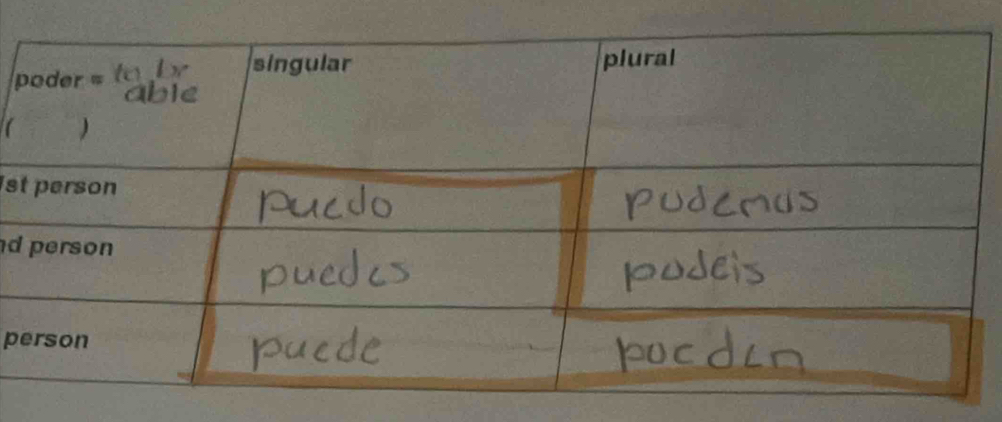 poder = to be singular plural
able
( )
1st person puedo podemos
nd person puedes podeis
person puede pueden